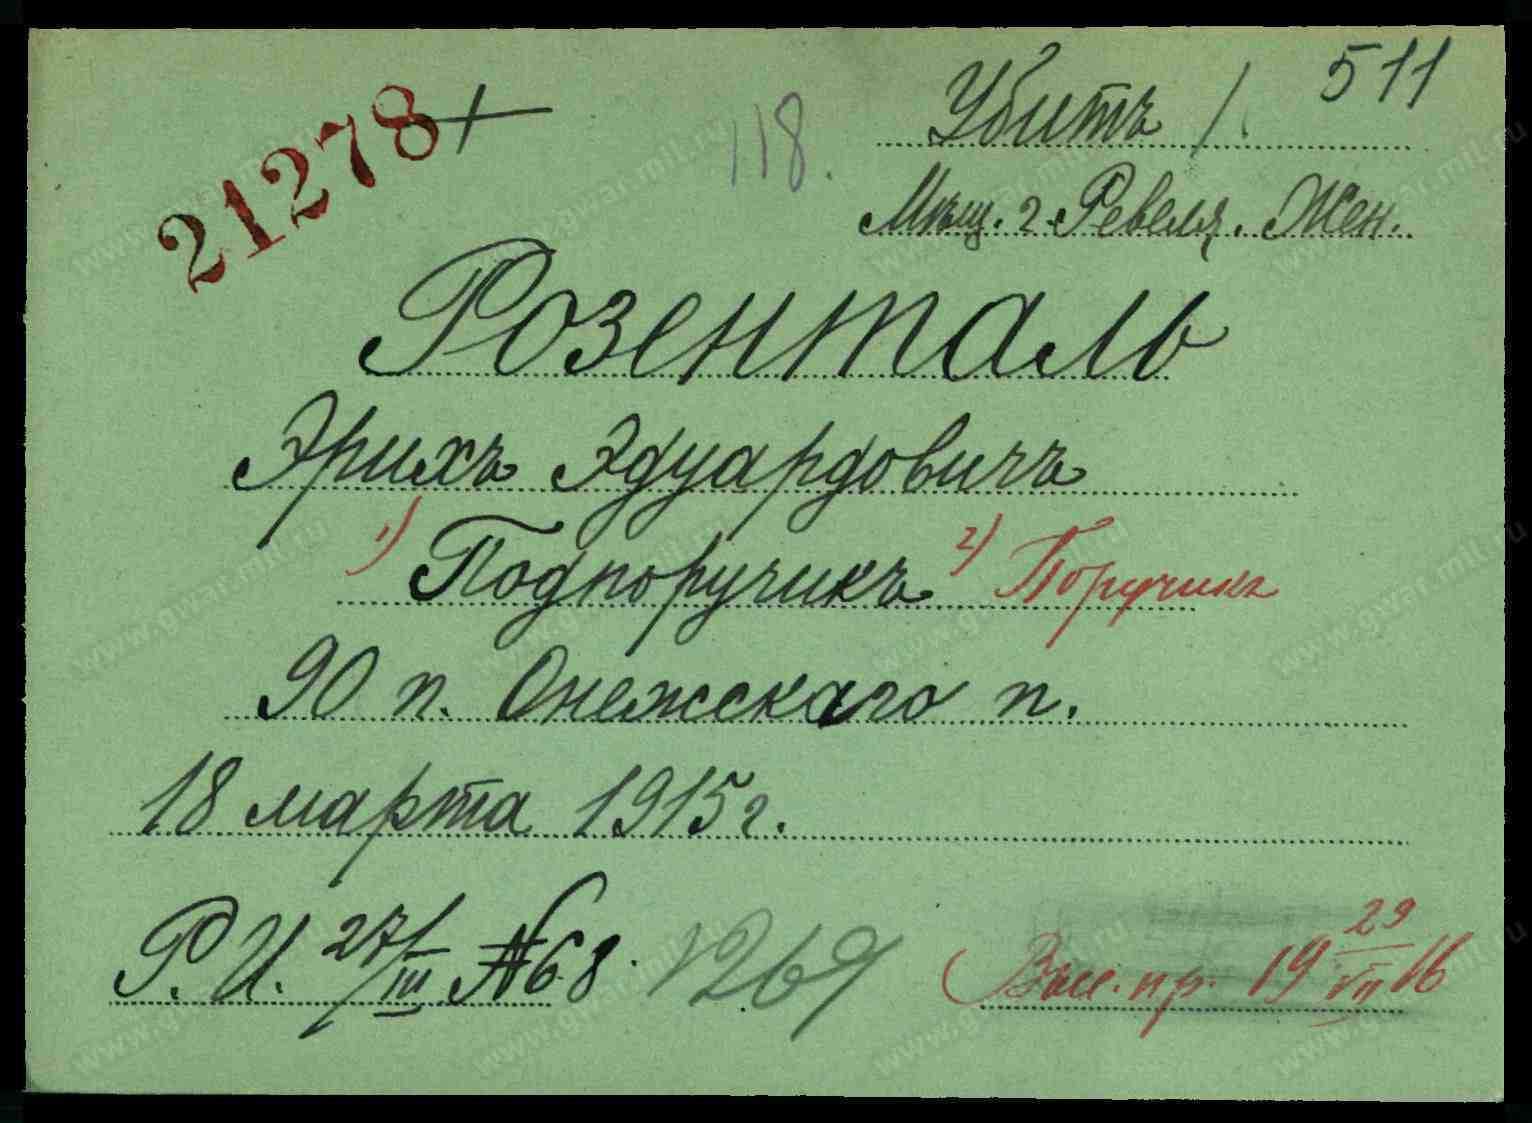 21278
118.
Убитъ / 511
Мѣщ. г. Ревеля. Жен.
Розенталь
Эрихъ Эдуардовичъ
1) Подпоручикъ 2) Поручикъ
90 п. Онежскаго п.
18 марта 1915 г.
Р. И. 27/III №68. 1269
Выс. пр. 19 29/VII 16
www.gwar.mil.ru